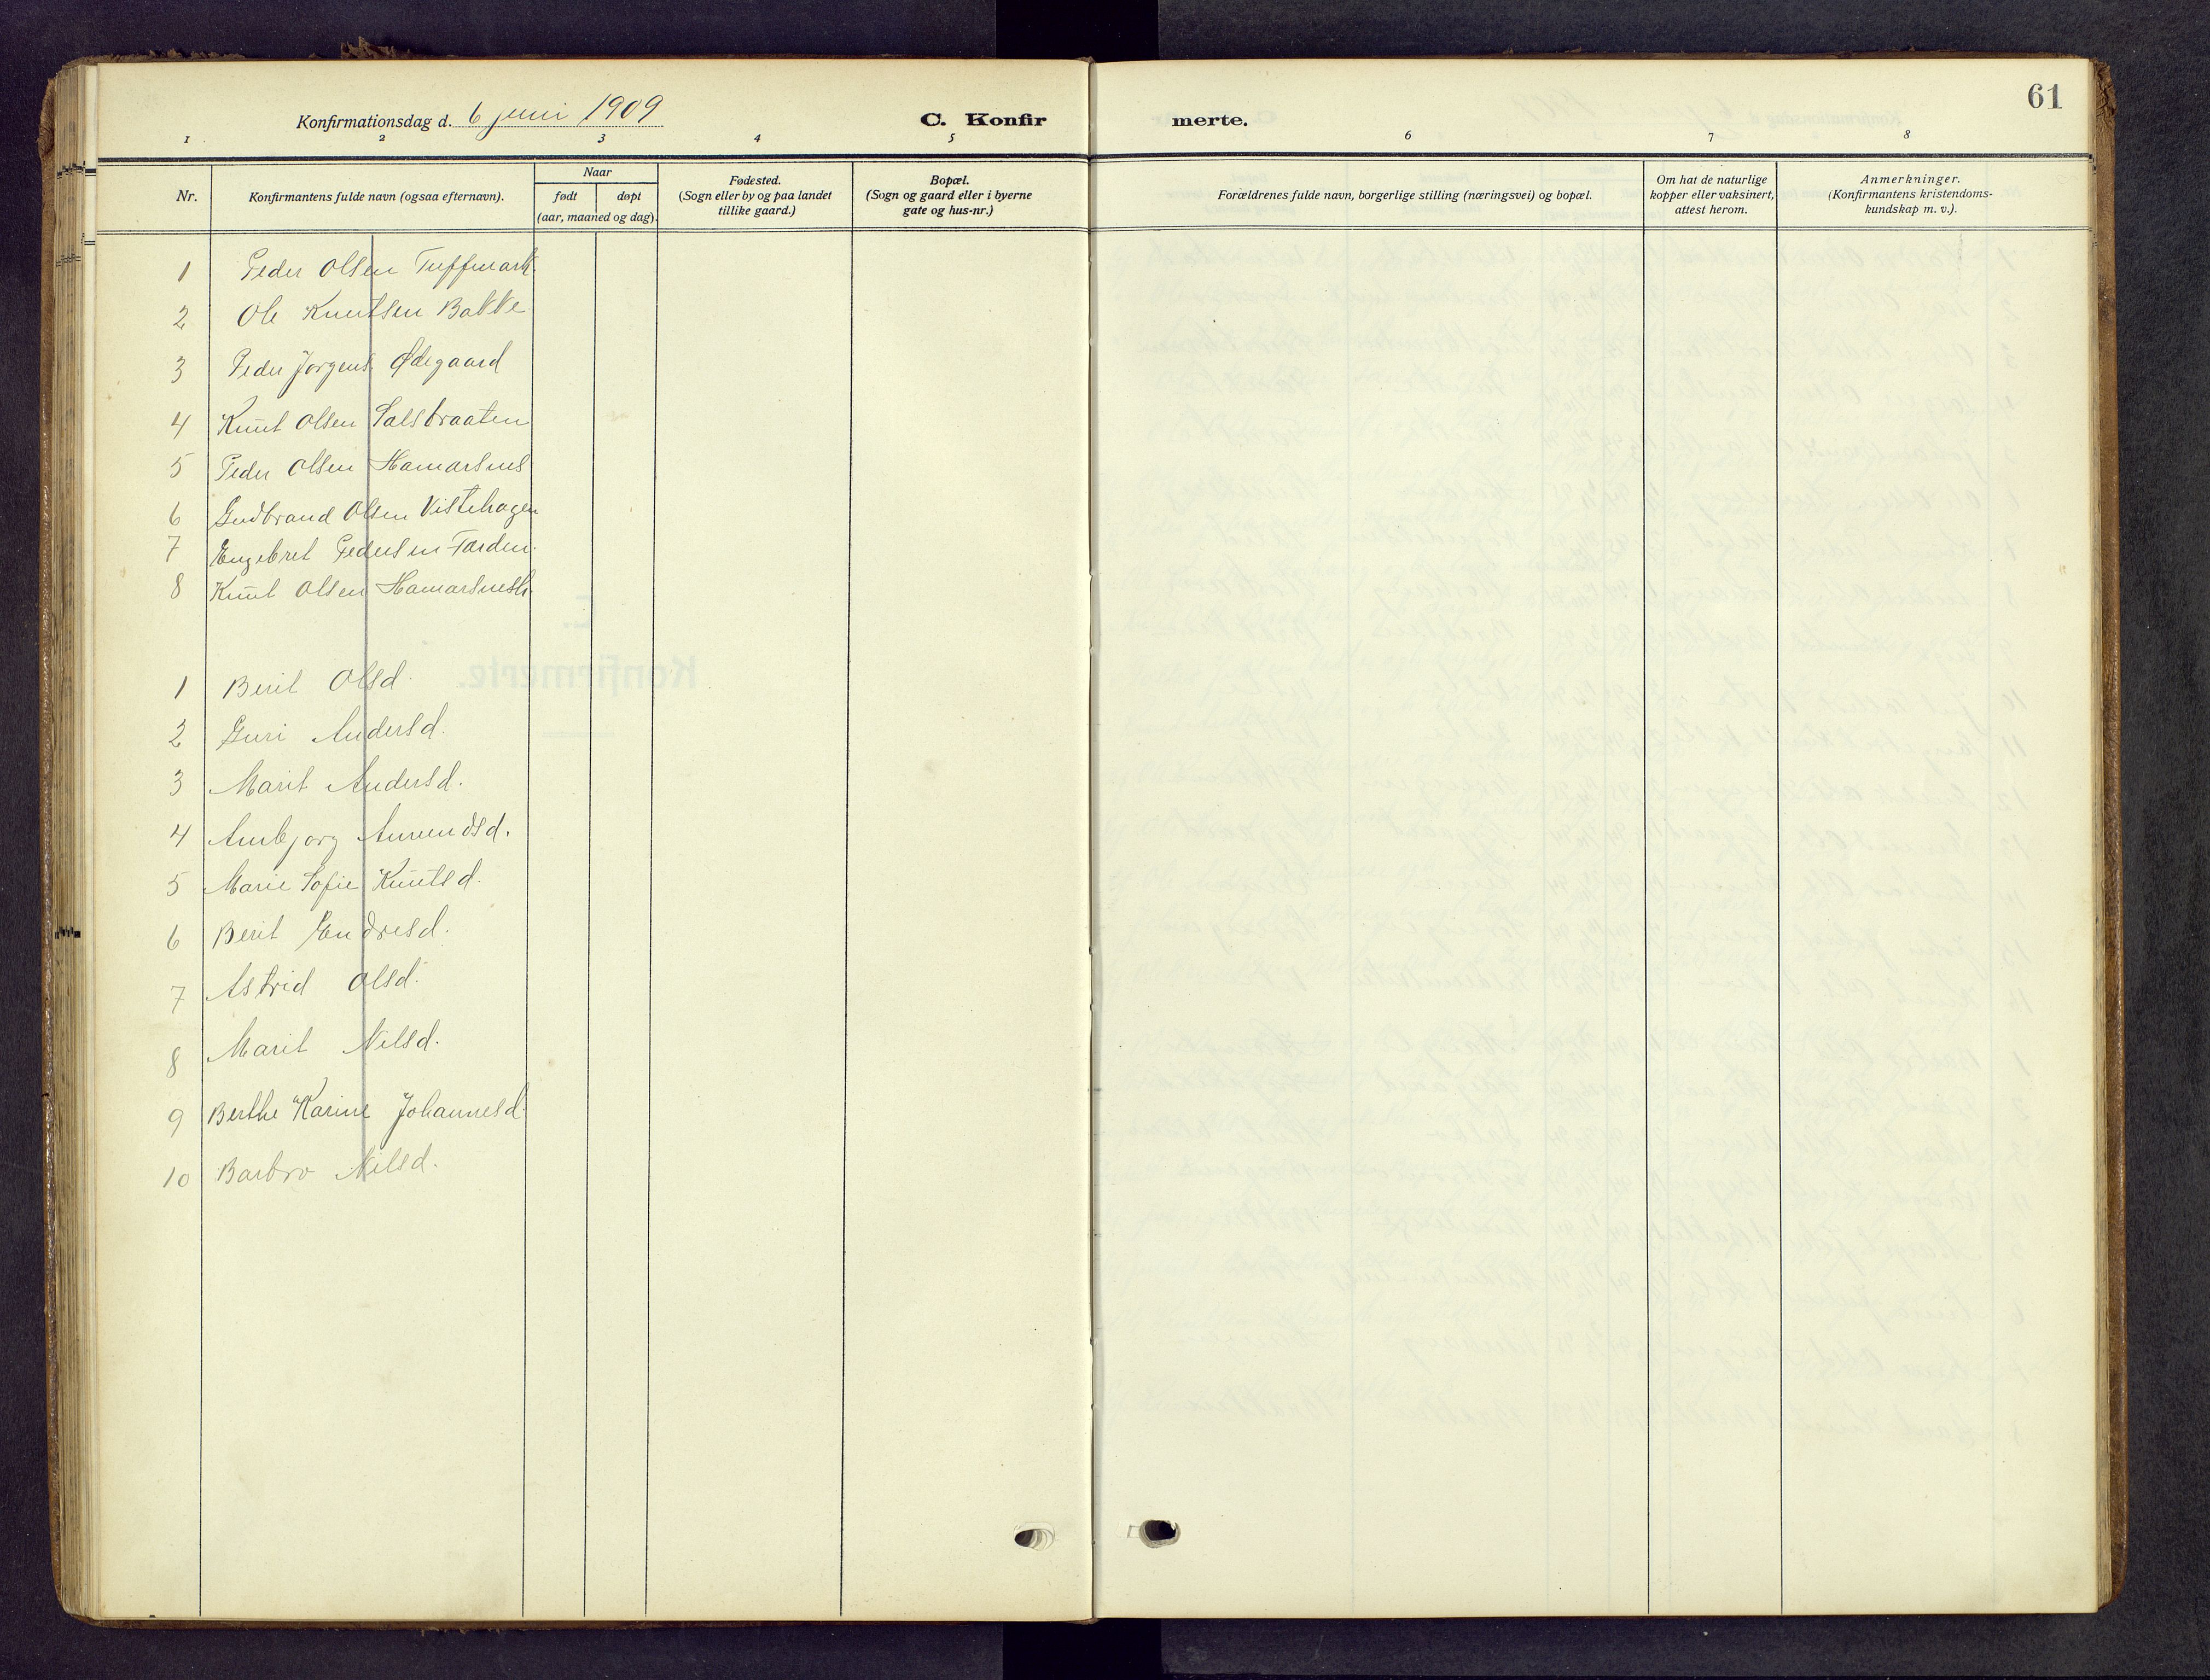 61
Konfirmationsdag d. 6 juni 1909
C. Konfir
merte.
1 2 3 4 5 6 7 8
Nr.
Konfirmantens fulde navn (ogsaa efternavn).
Naar
født døpt
(aar, maaned og dag).
Fødested.
(Sogn eller by og paa landet
tillike gaard.)
Bopæl.
(Sogn og gaard eller i byerne
gate og hus-nr.)
Forældrenes fulde navn, borgerlige stilling (næringsvei) og bopæl.
Om hat de naturlige
kopper eller vaksinert,
attest herom.
Anmerkninger.
(Konfirmantens kristendoms-
kundskap m. v.).
1 Peder Olsen Tuffmark.
2 Ole Knutsen Bakke
3 Peder Jørgens Ødegaard
4 Knut Olsen Salsbraaten
5 Peder Olsen Hamarsnes
6 Gudbrand Olsen Vistehagen
7 Engebret Pedersen
8 Knut Olsen Hamarsnesh.
1 Berit Olsd.
2 Guri Andersd.
3 Marit Andersd.
4 Ambjorg Amundsd.
5 Marie Sofie Knutsd.
6 Berit Endresd.
7 Astrid Olsd.
8 Marit Nilsd.
9 Berthe Karine Johannesd.
10 Barbro Nilsd.